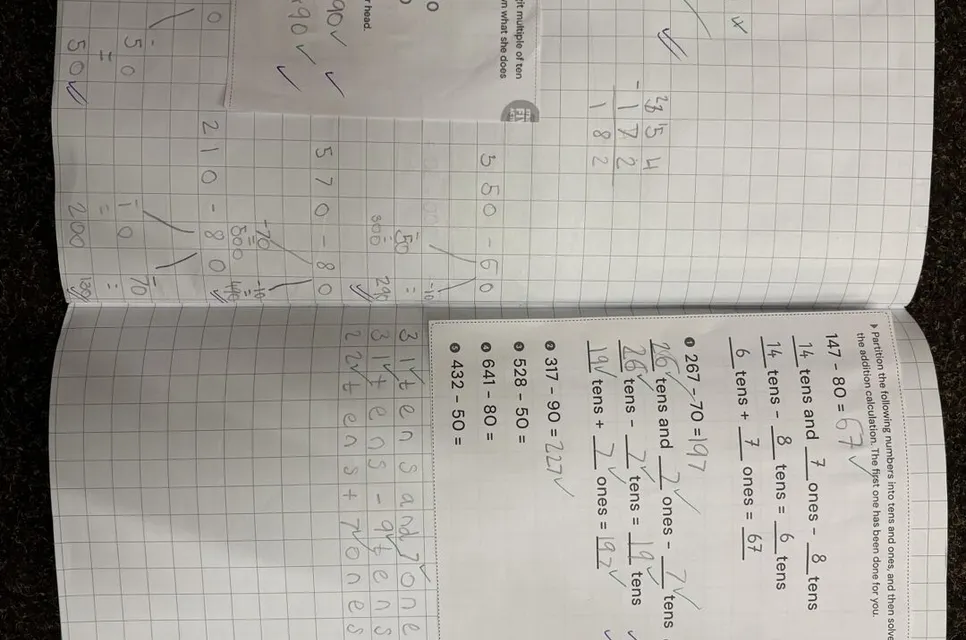 git multiple of ten
n what she does
r head.
90 ✓ ✓
90 ✓ ✓
50
=
50 ✓
2 8 15 4
- 1 7 2
1 8 2
350 - 60
-50 -10
= =
300 290 ✓
570 - 80
-70 -10
= =
500 490 ✓
210 - 80
-10 -70
= =
200 130 ✓
▸ Partition the following numbers into tens and ones, and then solve
the addition calculation. The first one has been done for you.
147 – 80 = 67 ✓
14 tens and 7 ones – 8 tens
14 tens – 8 tens = 6 tens
6 tens + 7 ones = 67
1 267 – 70 = 197
26 ✓ tens and 7 ✓ ones – 7 ✓ tens
26 ✓ tens – 7 ✓ tens = 19 ✓ tens
19 ✓ tens + 7 ✓ ones = 197 ✓
2 317 – 90 = 227 ✓
3 528 – 50 =
4 641 – 80 =
5 432 – 50 =
31 ✓ tens and 7 ✓ one
31 ✓ tens - 9 ✓ tens
22 ✓ tens + 7 ✓ ones